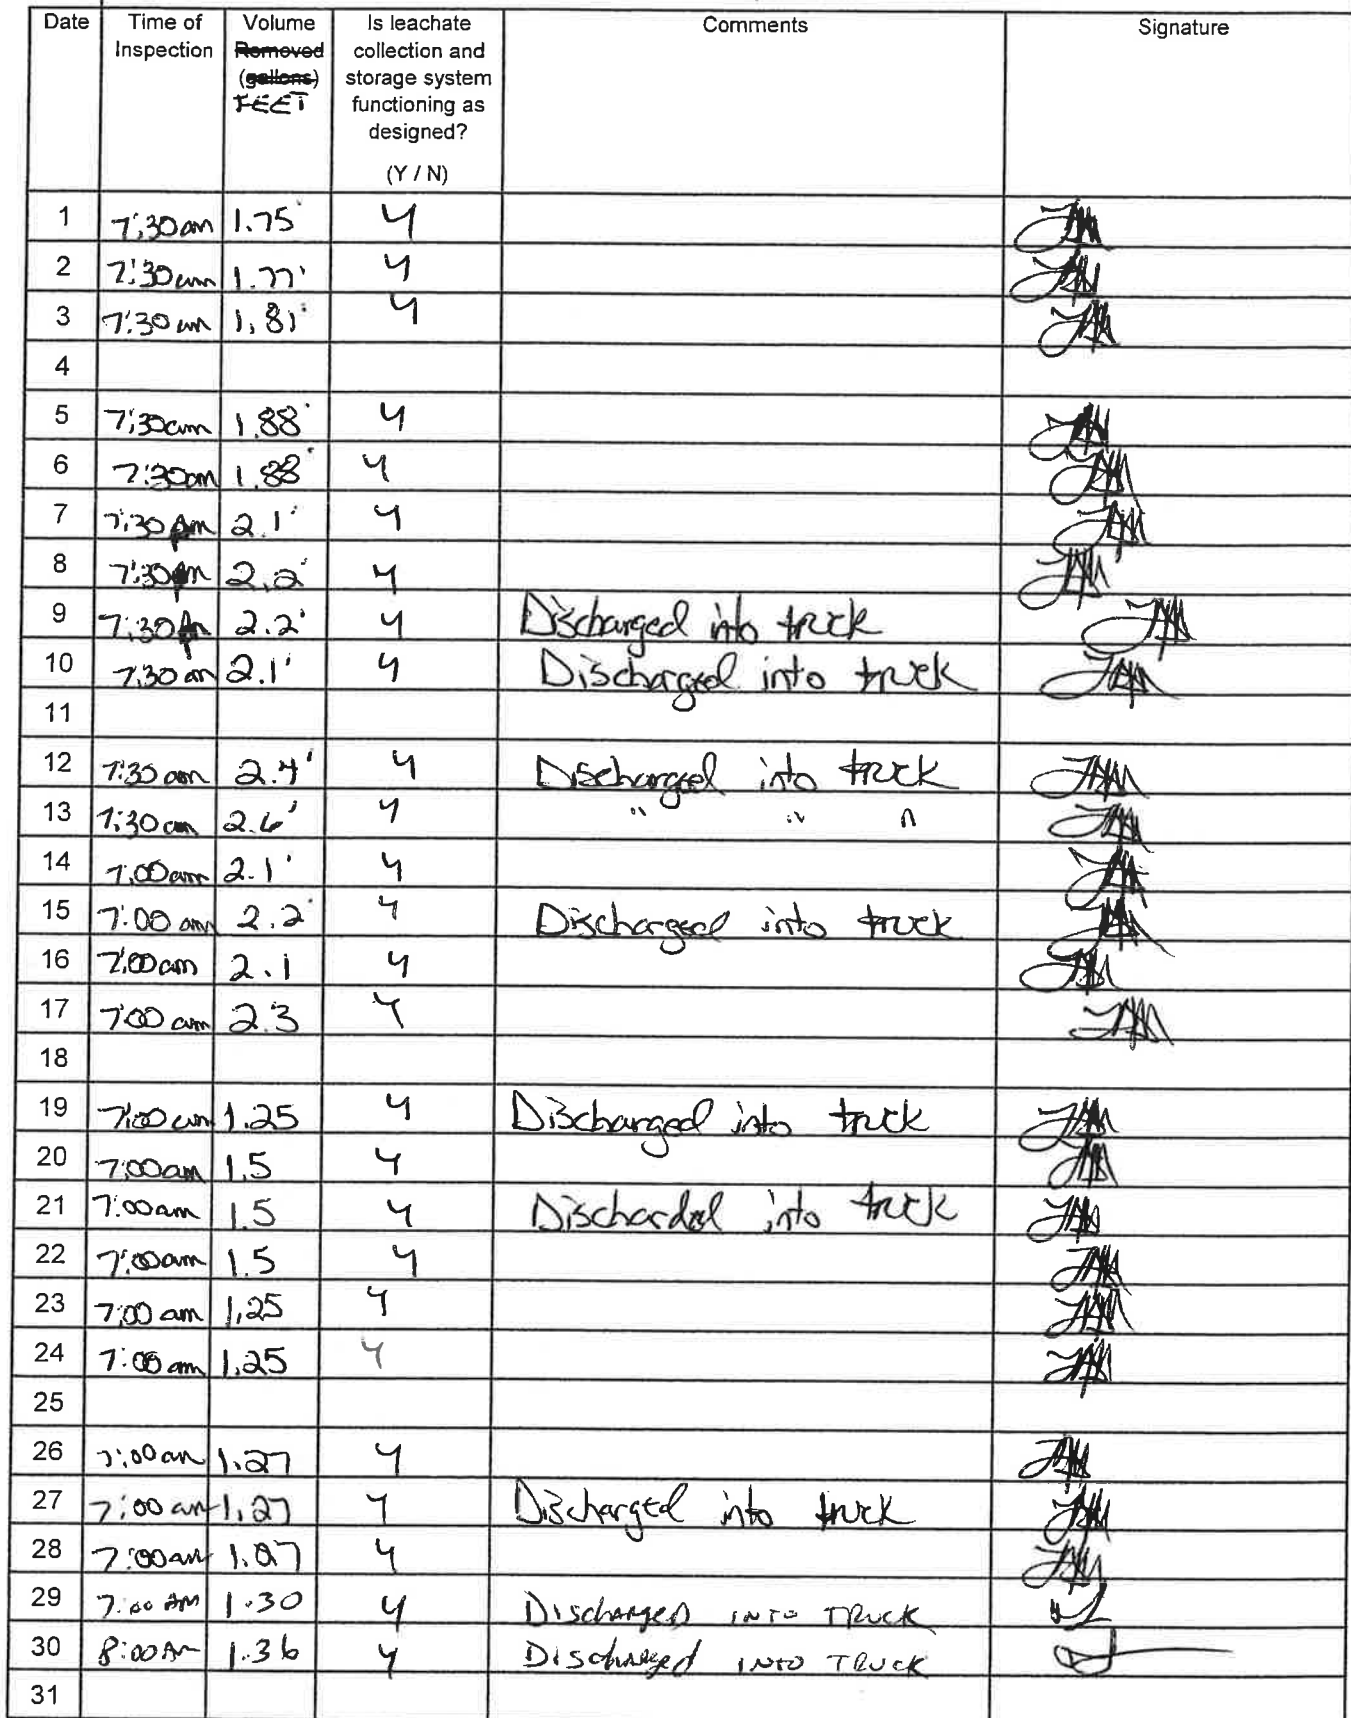 Date Time of Inspection Volume Removed (gallons) FEET Is leachate collection and storage system functioning as designed? (Y / N) Comments Signature
1 7:30am 1.75' Y
2 7:30am 1.77' Y
3 7:30am 1.81' Y
4
5 7:30am 1.88' Y
6 7:30am 1.88' Y
7 7:30 2.1' Y
8 7:30 2.2' Y
9 7:30 2.2' Y Discharged into truck
10 7:30am 2.1' Y Discharged into truck
11
12 7:30am 2.4' Y Discharged into truck
13 7:30am 2.6' Y " " "
14 7:00am 2.1' Y
15 7:00am 2.2' Y Discharged into truck
16 7:00am 2.1 Y
17 7:00am 2.3 Y
18
19 7:00am 1.25 Y Discharged into truck
20 7:00am 1.5 Y
21 7:00am 1.5 Y Dischardd into truck
22 7:00am 1.5 Y
23 7:00am 1.25 Y
24 7:00am 1.25 Y
25
26 7:00am 1.27 Y
27 7:00am 1.27 Y Discharged into truck
28 7:00am 1.27 Y
29 7:00 AM 1.30 Y Discharged INTO TRUCK
30 8:00AM 1.36 Y Discharged INTO TRUCK
31